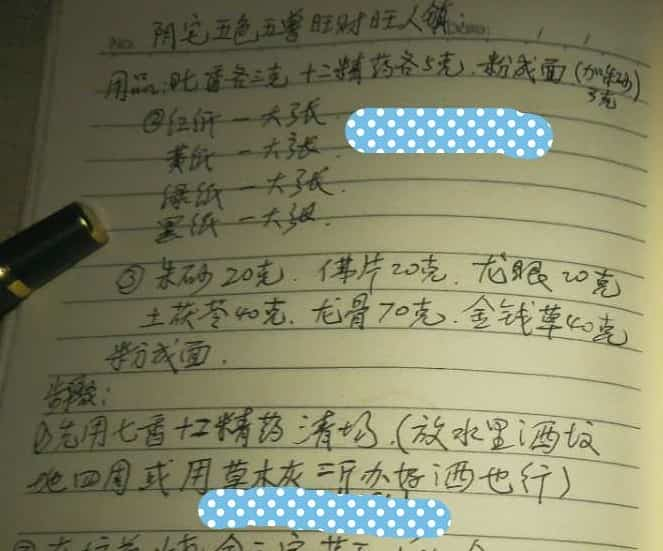 阴宅五色五兽旺财旺人镇:
No.
用品:七香各三克 十二精药各5克.粉成面(加朱砂
3克)
②红纸一大张
黄纸一大张.
绿纸一大张.
黑纸一大张.
③朱砂20克.佛片20克.龙眼20克
土茯苓40克.龙骨70克.金钱草40克
粉成面.
步骤:
①先用七香十二精药清场.(放水里洒坟
地四周或用草木灰三斤办好洒也行)